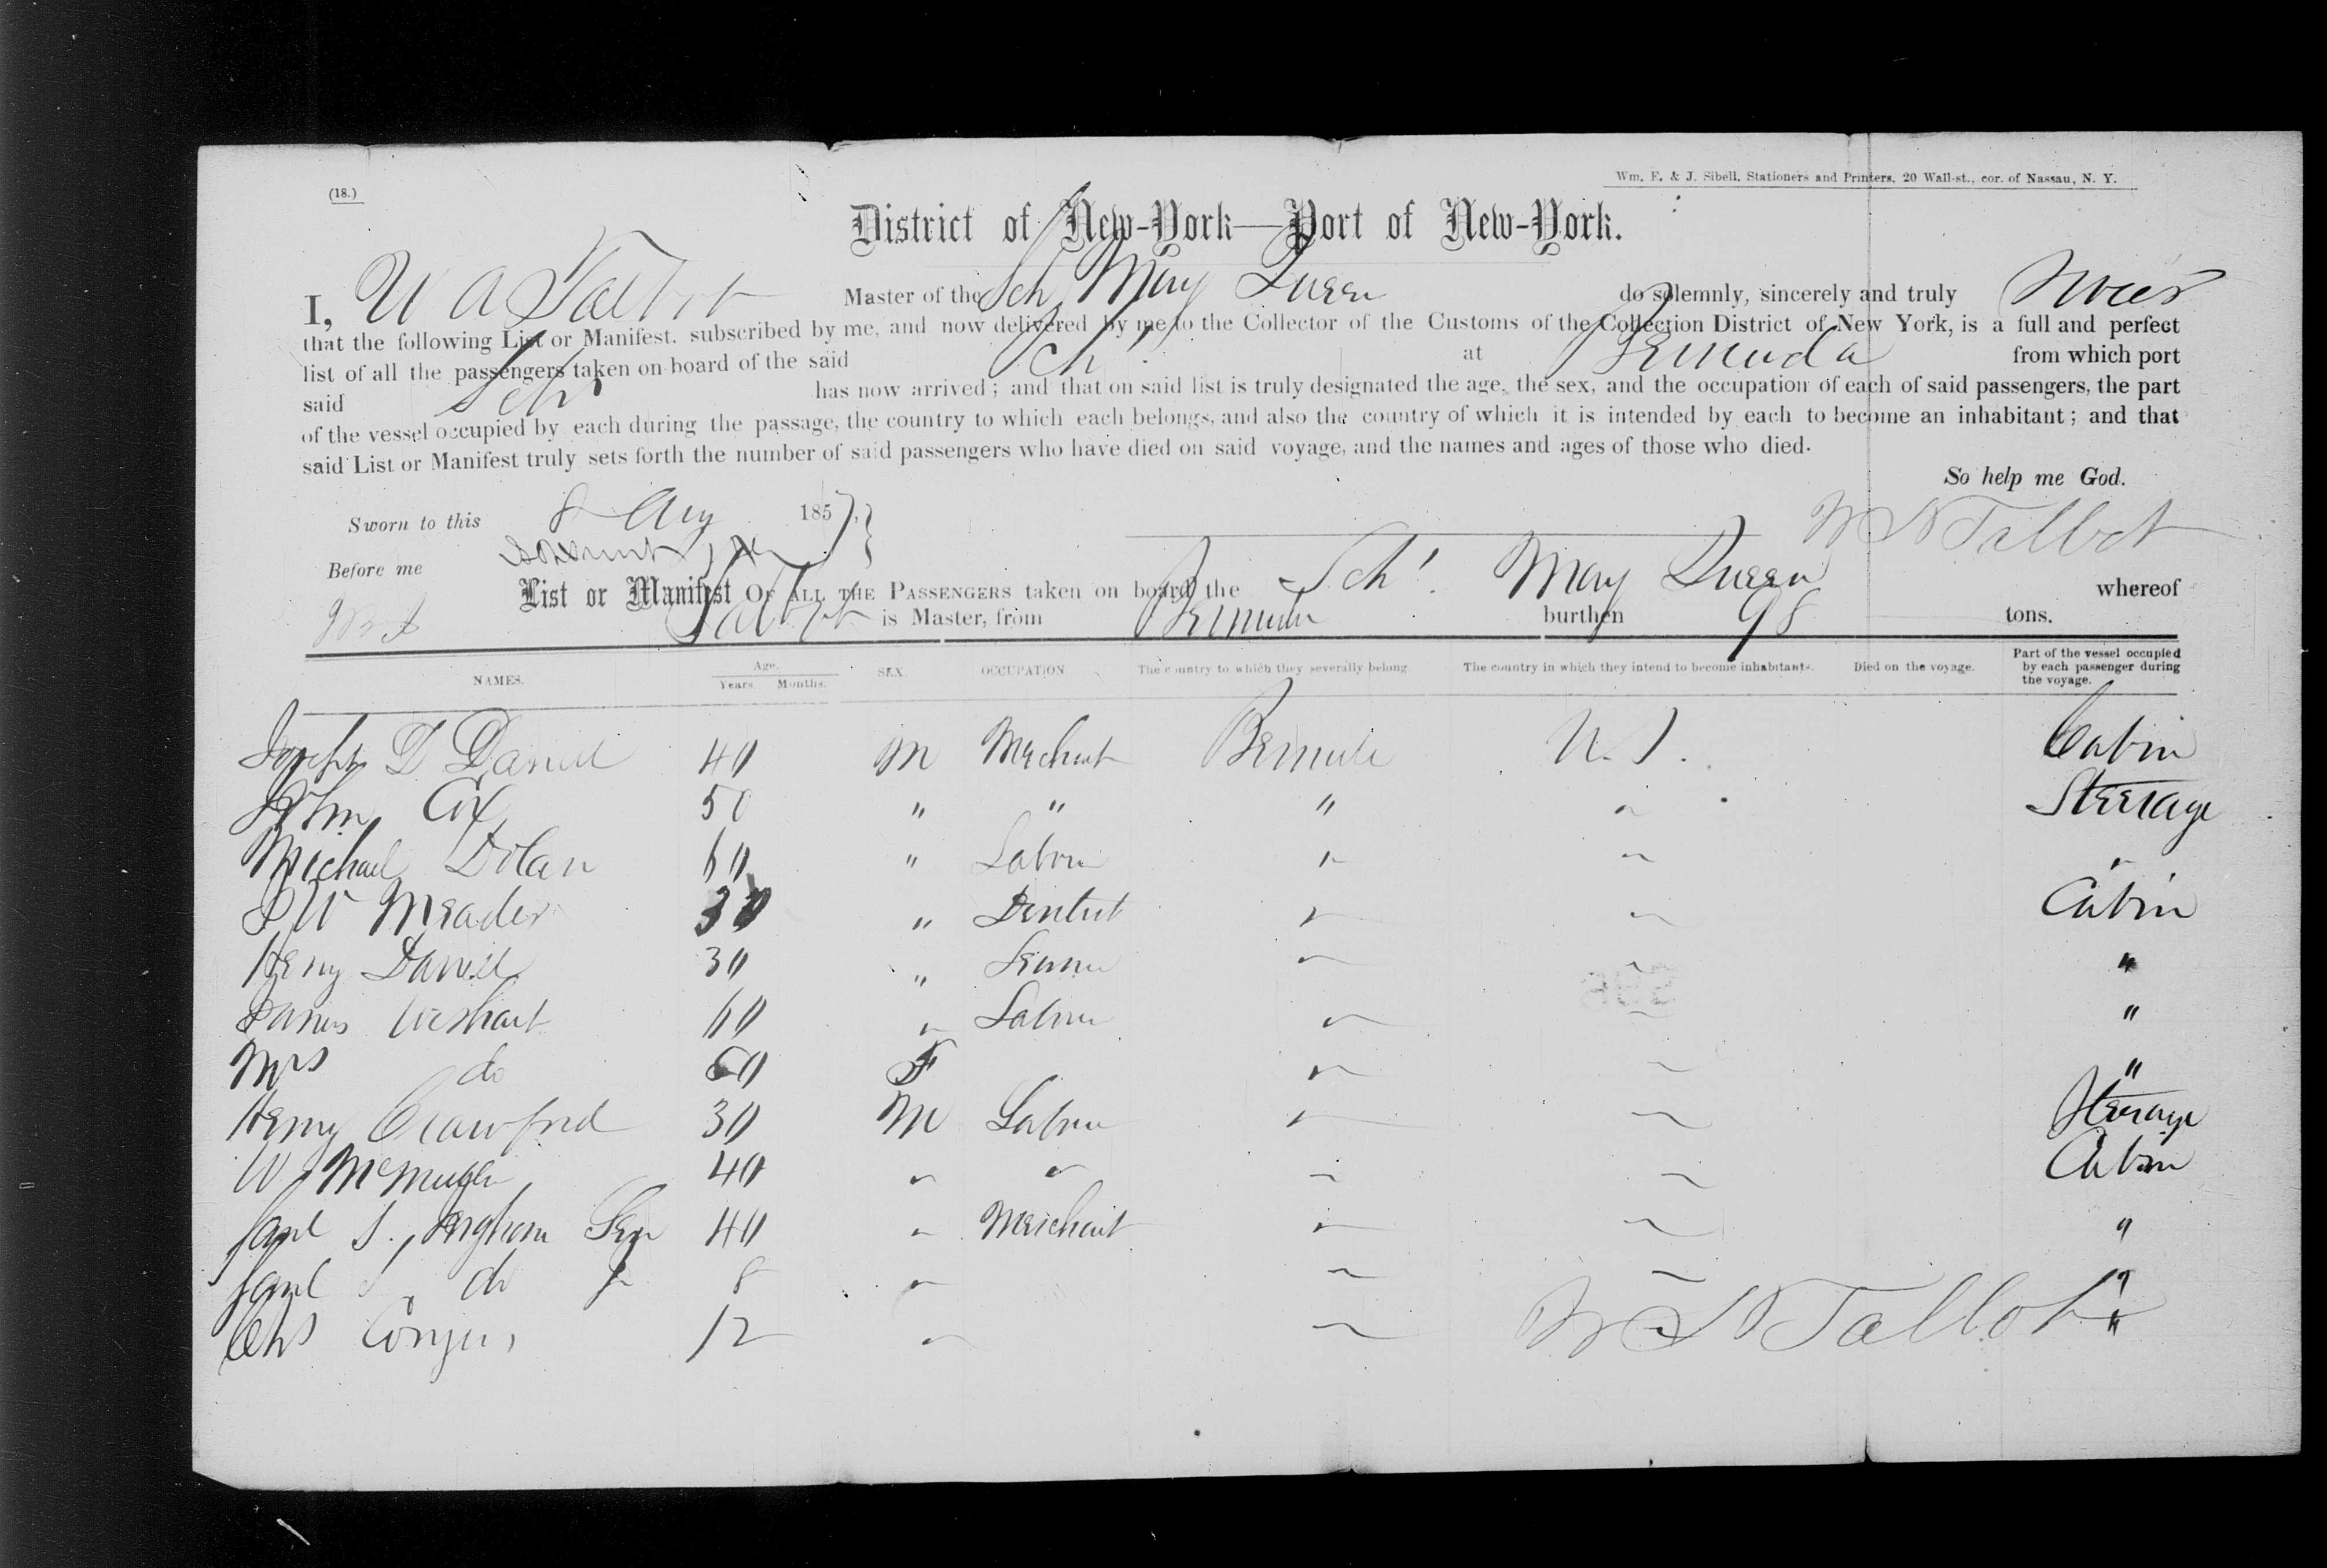 (18.)
Wm. F. & J. Sibell, Stationers and Printers, 20 Wall-st., cor. of Nassau, N. Y.
District of New-York—Port of New-York.
I, W A Talbot Master of the Sch May Queen do solemnly, sincerely and truly swear
that the following List or Manifest, subscribed by me, and now delivered by me to the Collector of the Customs of the Collection District of New York, is a full and perfect
list of all the passengers taken on board of the said Sch at Bermuda from which port
said Sch has now arrived; and that on said list is truly designated the age, the sex, and the occupation of each of said passengers, the part
of the vessel occupied by each during the passage, the country to which each belongs, and also the country of which it is intended by each to become an inhabitant; and that
said List or Manifest truly sets forth the number of said passengers who have died on said voyage, and the names and ages of those who died.
So help me God.
Sworn to this 8 Aug 1857,
W N Talbot
Before me
List or Manifest OF ALL THE PASSENGERS taken on board the Schr. May Queen whereof
Talbot is Master, from Bermuda burthen 98 tons.
NAMES. Age. Years. Months. SEX. OCCUPATION The country to which they severally belong. The country in which they intend to become inhabitants. Died on the voyage. Part of the vessel occupied by each passenger during the voyage.
Joseph D Darrell 40 M Merchant Bermuda U.S. Cabin
John Cox 50 " " " " Steerage
Michael Dolan 60 " Labour " " "
S W Meader 30 " Dentist " " Cabin
Henry Darrell 30 " " " "
James Weshart 60 " Labour " " "
Mrs do 60 F " " "
Henry Crawford 30 M Labour " " Steerage
W 40 " " " " Cabin
Saml S. Ingham Sen 40 " Merchant " " "
Saml S do Jr 8 " " " "
Chs 12 " " " "
W N Talbot